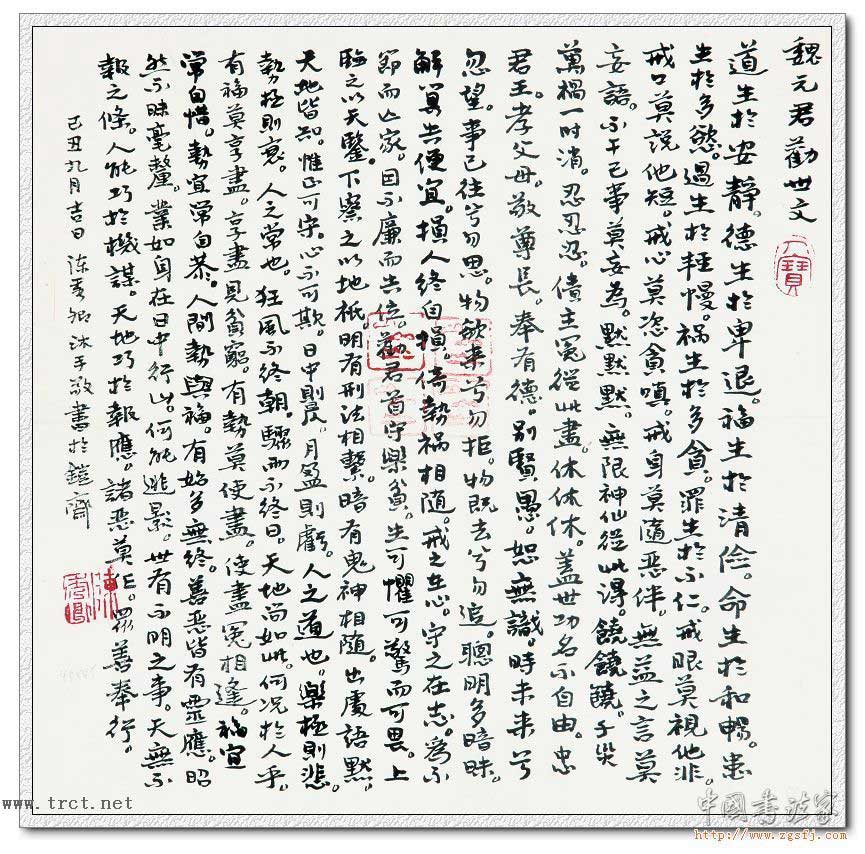 魏元君勸世文
道生於安靜。德生於卑退。福生於清儉。命生於和暢。患
生於多慾。過生於輕慢。禍生於多貪。罪生於不仁。戒眼莫視他非。
戒口莫說他短。戒心莫恣貪嗔。戒身莫隨惡伴。無益之言莫
妄語。不干己事莫妄為。默默默。無限神仙從此得。饒饒饒。千災
萬禍一时消。忍忍忍。債主冤從此盡。休休休。蓋世功名不自由。忠
君王。孝父母。敬尊長。奉有德。別賢愚。恕無識。時未來兮
忽望。事已往兮勿思。物欲來兮勿拒。物既去兮勿追。聰明多暗昧。
解算失便宜。損人終自損。倚勢禍相隨。戒之在心。守之在志。為不
節而亡家。因不廉而失位。勸君首守樂貧。生可懼可驚而可畏。上
臨之以天鑒。下察之以地祇。明有刑法相繫。暗有鬼神相隨。出處語默。
天地皆知。惟正可守。心不可欺。日中則昃。月盈則虧。人之道也。樂極則悲。
勢極則衰。人之常也。狂風不終朝。驟雨不終日。天地尚如此。何況於人乎。
有福莫享盡。享盡見貧窮。有勢莫使盡。使盡冤相逢。福宜
常自惜。勢宜常自恭。人間勢與福。有始多無終。善惡皆有靈應。昭
然不昧毫釐。業如身在日中行山。何能逃影。世有不明之事。天無不
報之條。人能巧於機謀。天地巧於報應。諸惡莫作。眾善奉行。
己丑九月吉日 陈秀卿沐手敬書於鎧齋
www.trct.net
中國書法家
http://www.zgsfj.com